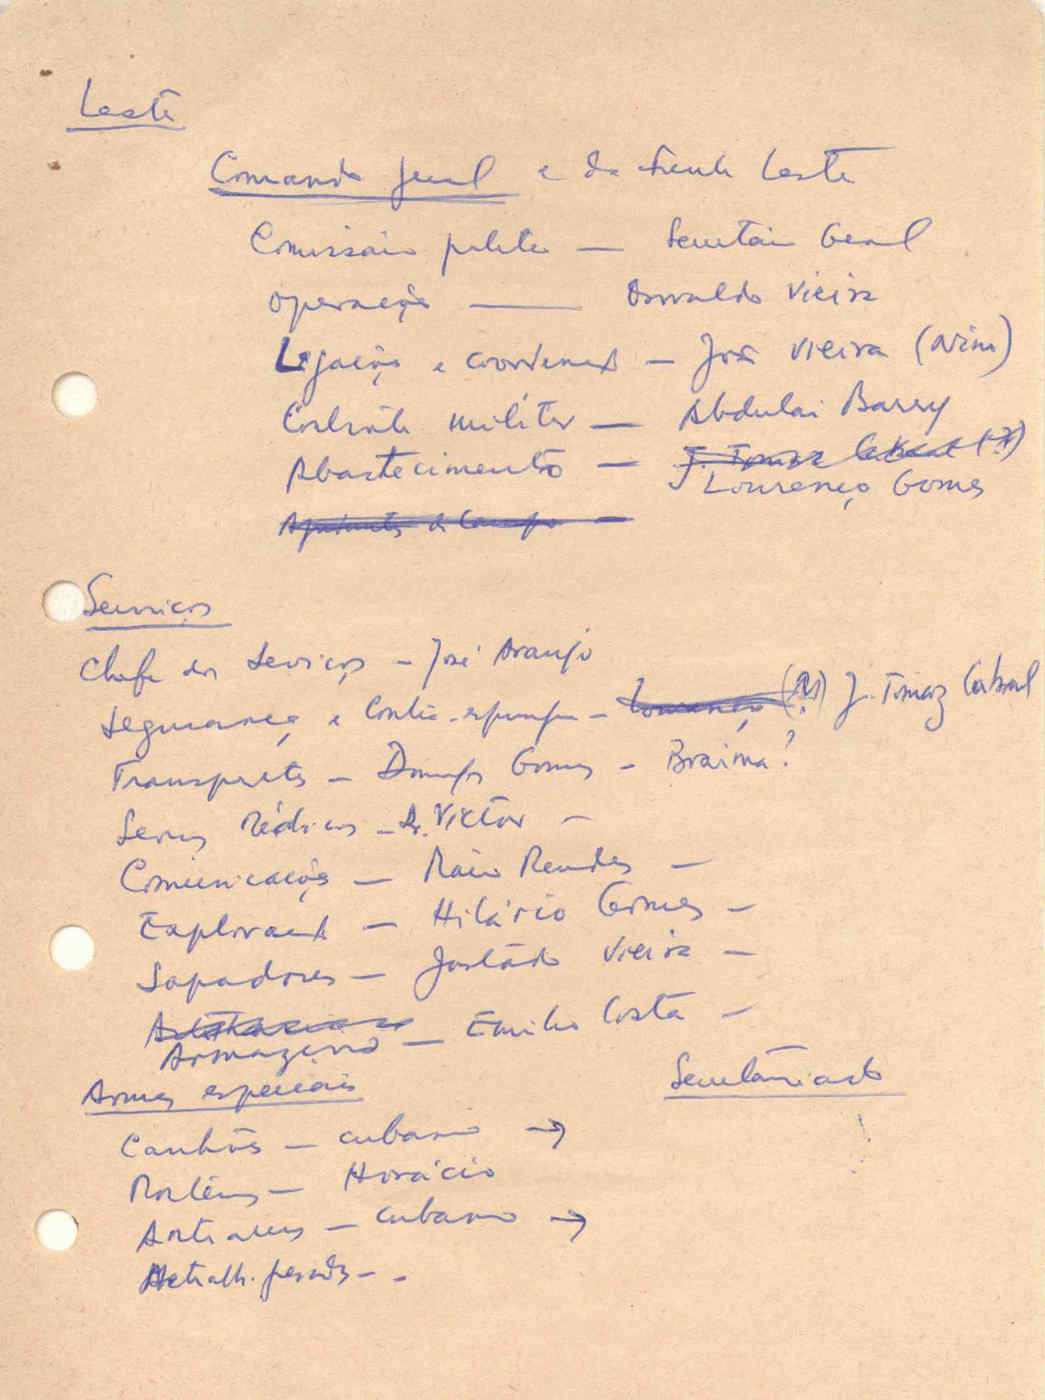 Leste
Comando geral e da frente Leste
Comissário político — Secretário Geral
Operações — Osvaldo Vieira
Ligação e coordenação — José Vieira (Nino)
Controle militar — Abdulai Barry
Abastecimento — J. Tomaz Cabral (?)
Lourenço Gomes
de Campo —
Serviços
Chefe dos Serviços — José Araujo
Segurança e Contra-espionagem — Lourenço (?) J. Tomaz Cabral
Transportes — Domingos Gomes — Braima?
Serviços Médicos — Dr. Victor —
Comunicações — Mário Mendes —
Exploração — Hilário Gomes —
Sapadores — Justado Vieira —
Armazéns — Emilio Costa —
Armas especiais
Secretariado
Canhões — cubano →
Morteiros — Horácio
Anti aereas — cubano →
Metralh. pesadas — .